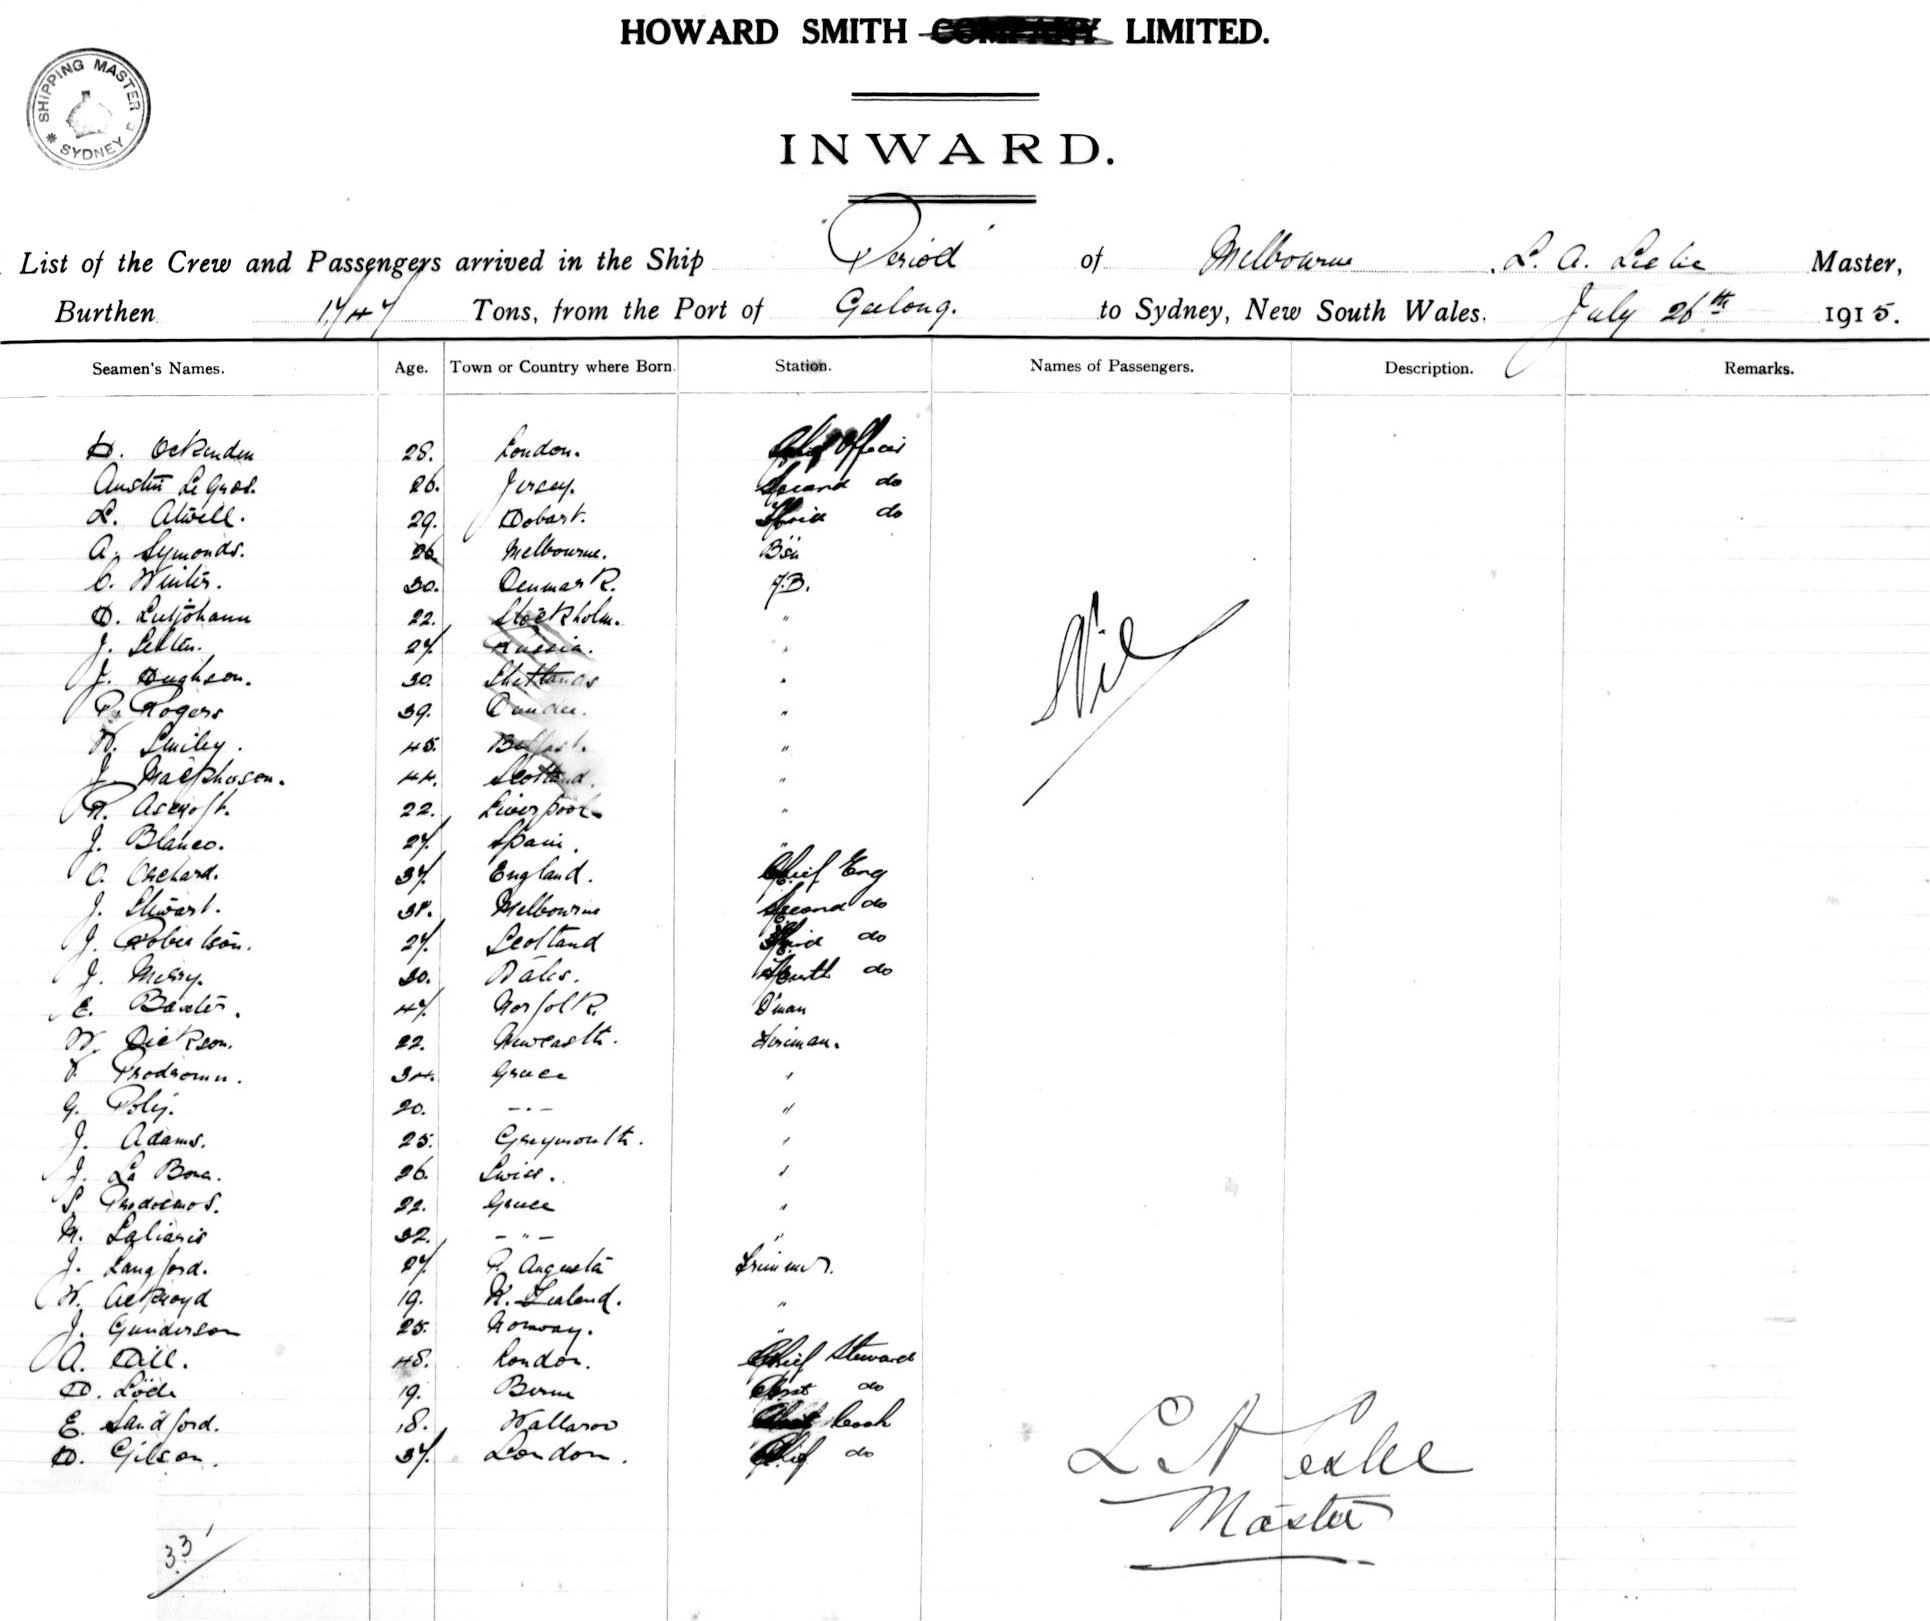 HOWARD SMITH COMPANY LIMITED.
SHIPPING MASTER SYDNEY
INWARD.
List of the Crew and Passengers arrived in the Ship "Period" of Melbourne, L. A. Leslie Master,
Burthen 1,747 Tons, from the Port of Geelong. to Sydney, New South Wales. July 26th 1915.
Seamen's Names. Age. Town or Country where Born. Station. Names of Passengers. Description. Remarks.
Ockenden 28. London. Chief Officer
Austin Le Gros. 26. Jersey. Second do
L. Atwell. 29. Hobart. Third do
A. Symonds. 26 Melbourne. Bsn
C. Winter. 30. Denmark. A.B.
Lutjohann 22. Stockholm. "
J. Selten. 27. Russia. "
J. Hughson. 30. Shetlands "
P. Rogers 39. Dundee. "
W. Smiley. 45. Belfast. "
J. Macpherson. 44. Scotland. "
R. Ascroft. 22. Liverpool "
J. Blanco. 27. Spain. "
O. Orchard. 37. England. Chief Eng
J. Stewart. Melbourne Second do
J. Robertson. 27. Scotland Third do
J. Merry. 30. Wales. Fourth do
E. Baxter. 47. Norfolk. D'man
W. Dickson. 22. Newcastle. Fireman.
Prodromu. 34. Greece "
G. Polij. 20. - " - "
J. Adams. 25. Greymouth. "
J. La Bona. 26. Swiss. "
S. 22. Greece "
M. 32. - " - "
J. Langford. 27. P. Augusta Trimmer.
W. Ackroyd 19. N. Zealand. "
J. Gunderson 25. Norway. "
A. Hill. 48. London. Chief Steward
19. do
E. Sandford. 18. Wallaroo Cook
Gilson. 37. London. Chief do
Nil
L A Leslie
Master
33